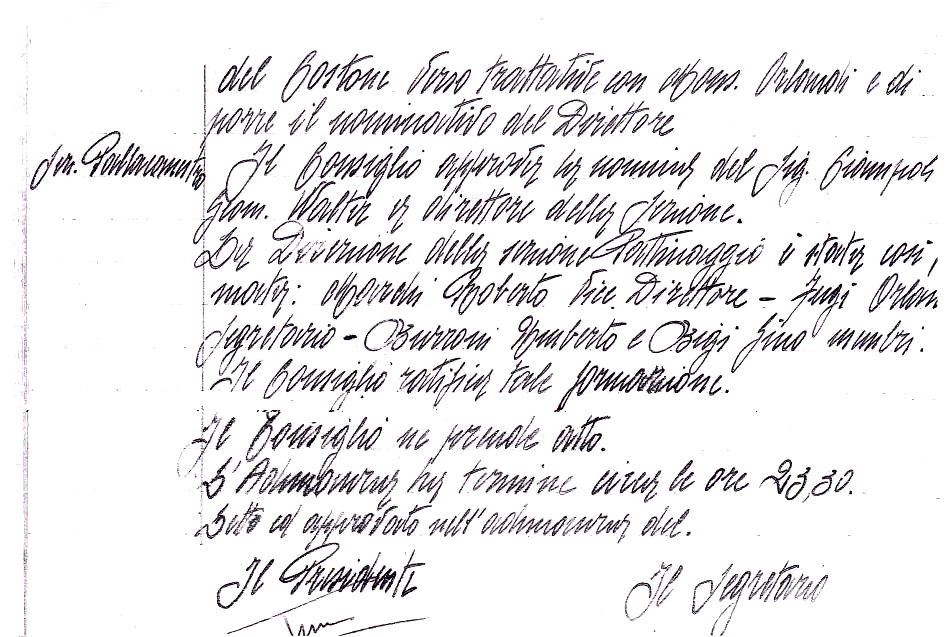 del Costone verso trattative con Mons. Orlandi e di
porre il nominativo del Direttore
Sez. Pallacanestro Il Consiglio approva la nomina del Sig. Ciampoli
Giom. Walter a direttore della Sezione.
La Direzione della sezione Pattinaggio è stata così,
mata: Marchi Roberto Vice Direttore - Fusi Orlan
Segretario - Burroni Umberto e Bigi Gino membri.
Il Consiglio ratifica tale formazione.
Il Consiglio ne prende atto.
L'Adunanza ha termine circa le ore 23,30.
Letto ed approvato nell'adunanza del.
Il Presidente Il Segretario